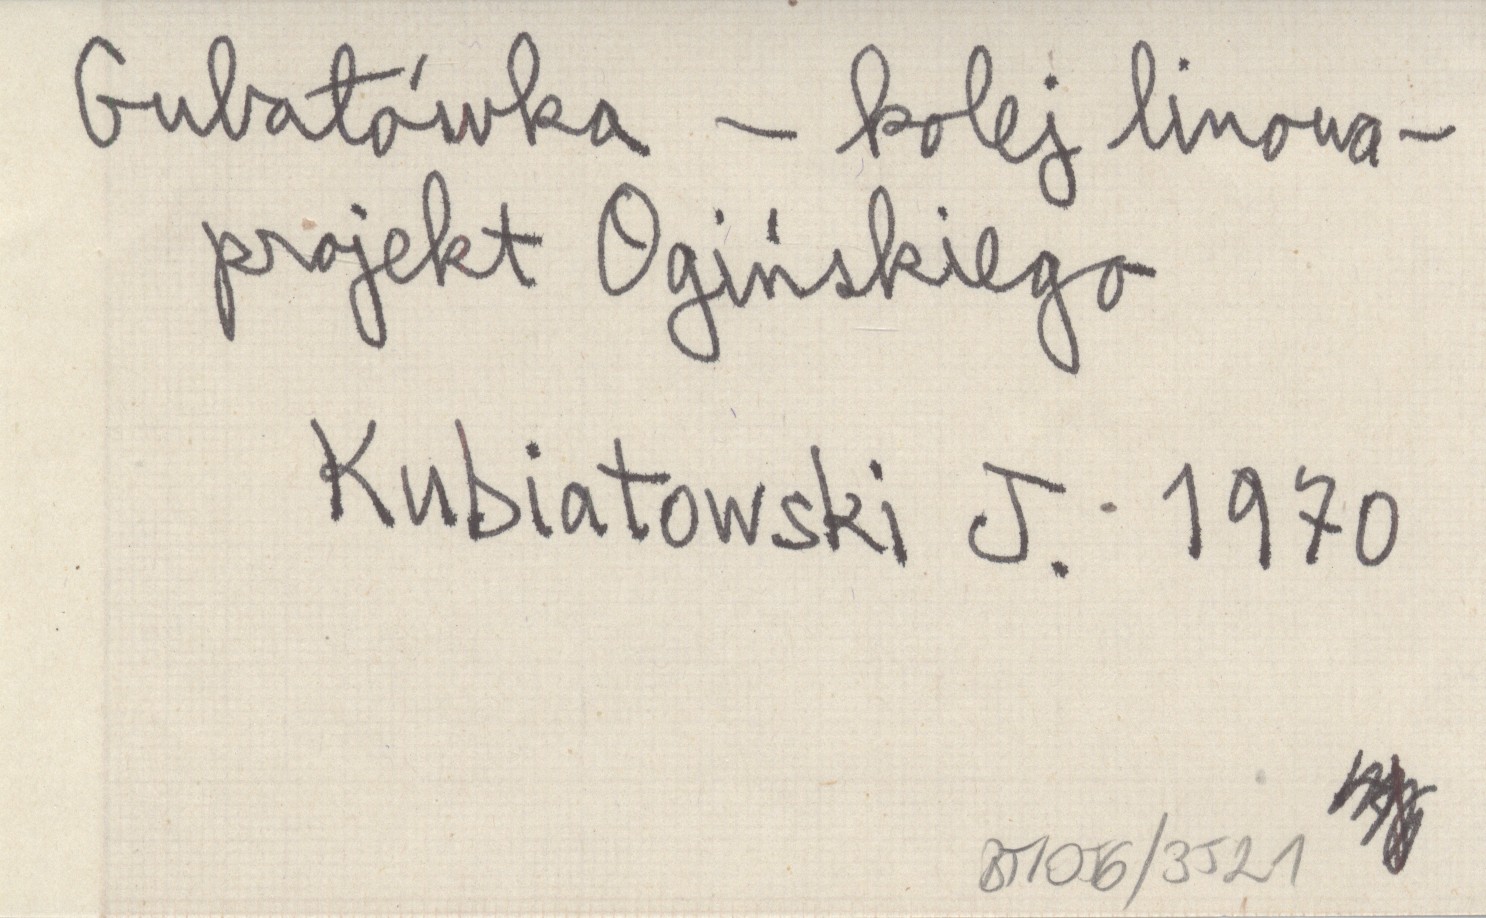 Gubałówka – kolej linowa –
projekt Ogińskiego
Kubiatowski J. 1970